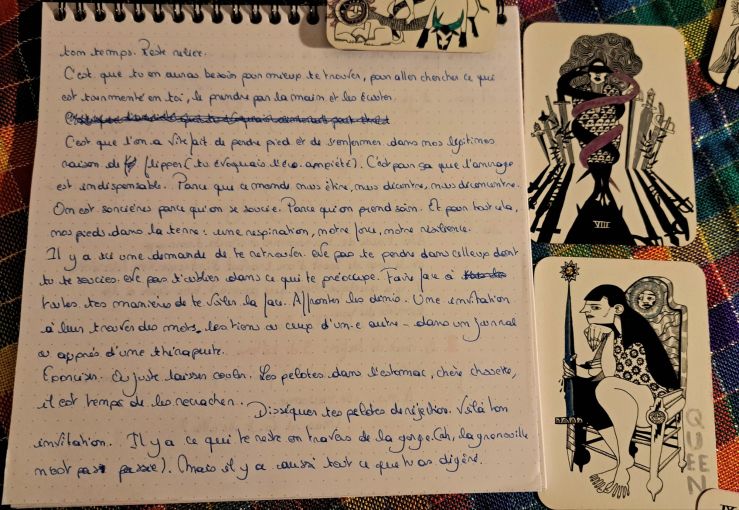 ton temps. Reste reliée.
C'est que tu en auras besoin pour mieux te trouver, pour aller chercher ce qui
est tourmenté en toi, le prendre par la main et les écouter.
C'est que l'on a vite fait de perdre pied et de s'enfermer dans nos légitimes
raison de flipper (tu évoquais l'éco-anxiété). C'est pour ça que l'ancrage
est indispensable. Parce que ce monde nous étire, nous décentre, nous déconcentre.
On est sorcières parce qu'on se soucie. Parce qu'on prend soin. Et pour tout cela,
nos pieds dans la terre : une respiration, notre force, notre résilience.
Il y a ici une demande de te retrouver. Ne pas te perdre dans celleux dont
tu te soucies. Ne pas t'oublier dans ce qui te préoccupe. Faire face à
toutes tes manières de te voiler la face. Affronter les dénis. Une invitation
à leur trouver des mots. Les tiens ou ceux d'un·e autre - dans un journal
ou auprès d'une thérapeute.
Exorciser. Ou juste laisser couler. Les pelotes dans l'estomac, chère chouette,
il est temps de les recracher. Disséquer tes pelotes de réjection. Voilà ton
invitation. Il y a ce qui te reste en travers de la gorge (ah, la grenouille
n'est pas passée). Mais il y a aussi tout ce que tu as digéré.
VIII
QUEEN
IX